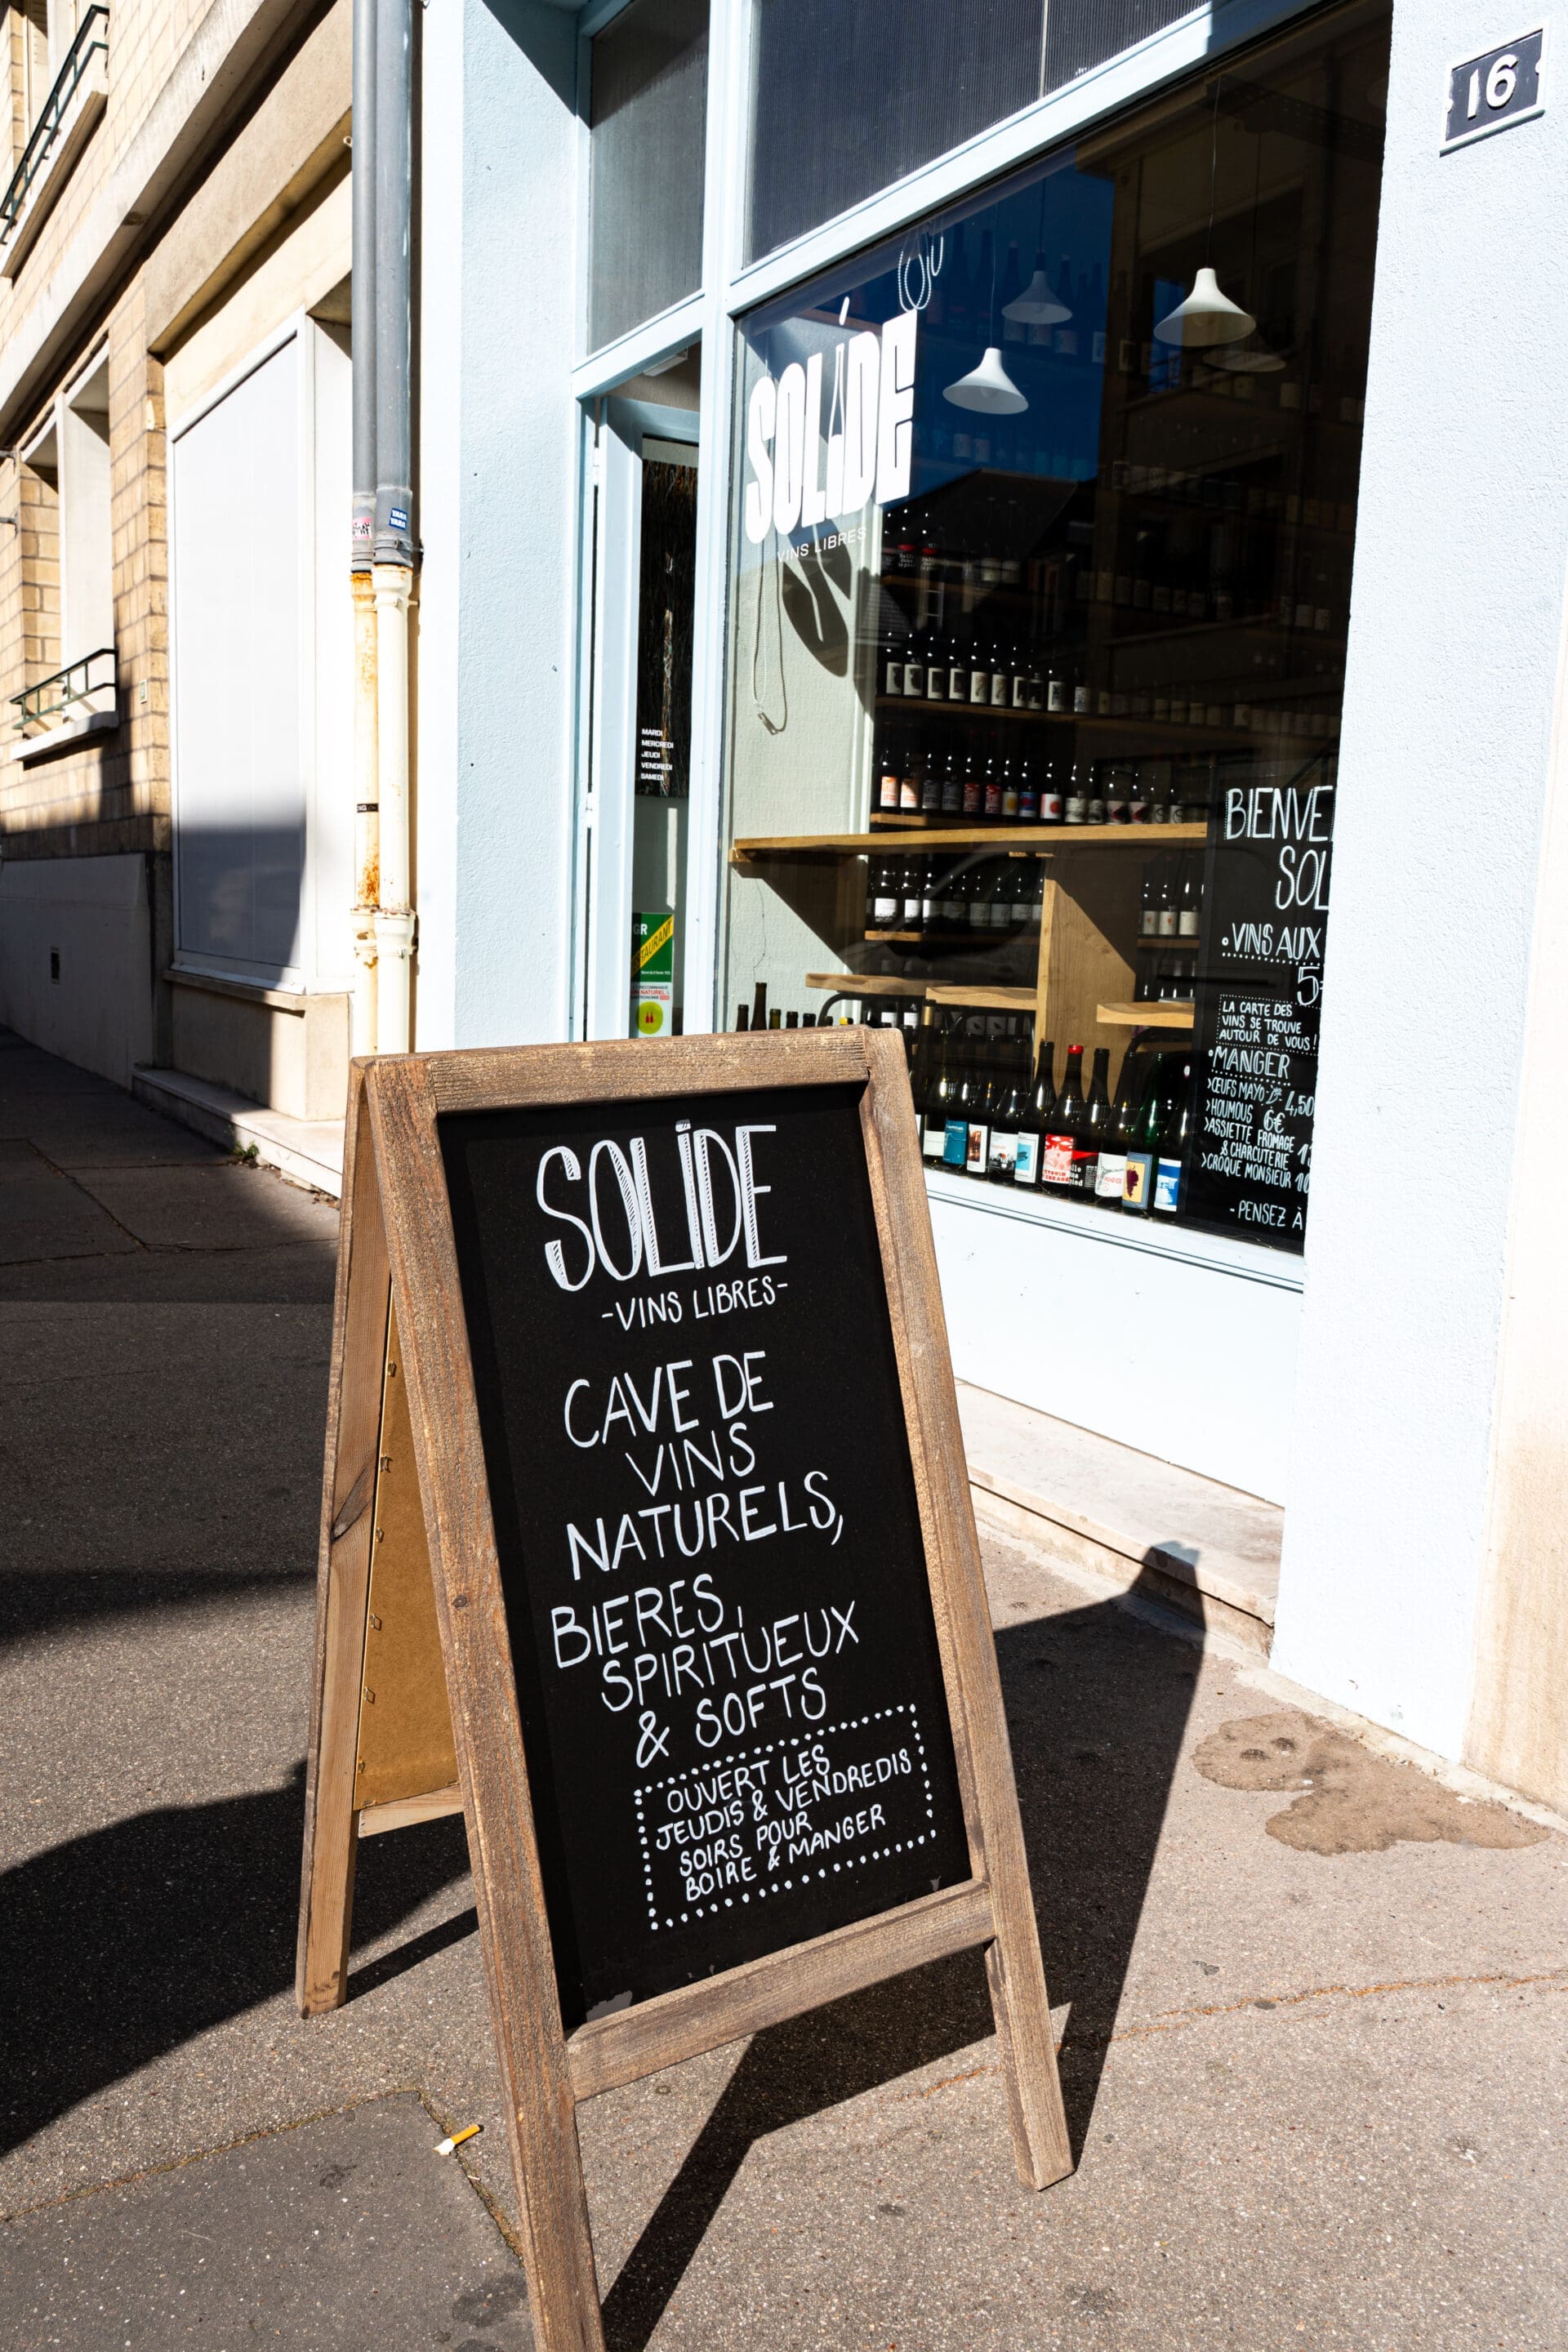 16
SOLIDE
VINS LIBRES
MARDI
MERCREDI
JEUDI
VENDREDI
SAMEDI
BIENVE
SOL
•VINS AUX
5
LA CARTE DES
VINS SE TROUVE
AUTOUR DE VOUS!
•MANGER
>ŒUFS MAYO 4,50
>HOUMOUS 6€
>ASSIETTE FROMAGE
& CHARCUTERIE
>CROQUE MONSIEUR
-PENSEZ À
SOLIDE
-VINS LIBRES-
CAVE DE
VINS
NATURELS,
BIERES,
SPIRITUEUX
& SOFTS
OUVERT LES
JEUDIS & VENDREDIS
SOIRS POUR
BOIRE & MANGER